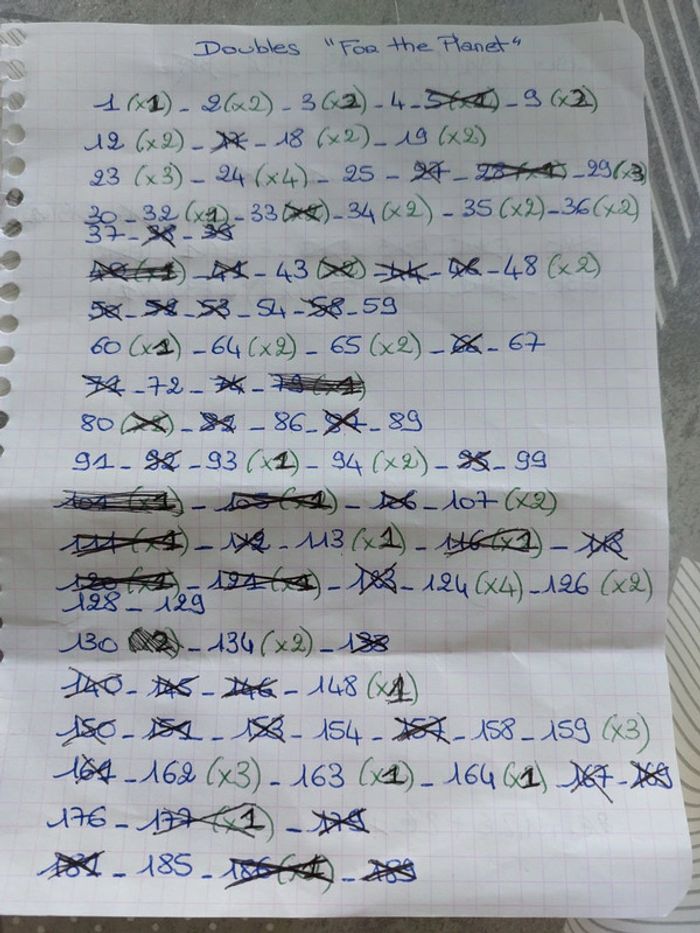 Doubles "For the Planet"
1 (x1) - 2 (x2) - 3 (x2) - 4 - 5 (x1) - 9 (x2)
12 (x2) - 17 - 18 (x2) - 19 (x2)
23 (x3) - 24 (x4) - 25 - 27 - 28 (x1) - 29 (x3)
30 - 32 (x1) - 33 (x1) - 34 (x2) - 35 (x2) - 36 (x2)
37 - 38 -
40 (x1) - 41 - 43 (x2) - 44 - 46 - 48 (x2)
50 - 53 - 54 - 58 - 59
60 (x1) - 64 (x2) - 65 (x2) - 66 - 67
71 - 72 - 74 - 79 (x1)
80 - 86 - 87 - 89
91 - 92 - 93 (x1) - 94 (x2) - 95 - 99
101 (x1) - 105 (x1) - 106 - 107 (x2)
111 (x1) - 112 - 113 (x1) - 116 (x1) - 118
120 (x1) - 121 (x1) - 123 - 124 (x4) - 126 (x2)
128 - 129
130 - 134 (x2) - 138
140 - 145 - 146 - 148 (x1)
150 - 151 - 153 - 154 - 157 - 158 - 159 (x3)
161 - 162 (x3) - 163 (x1) - 164 (x1) - 167 - 169
176 - 177 (x1) - 179
181 - 185 - 186 (x1) - 189